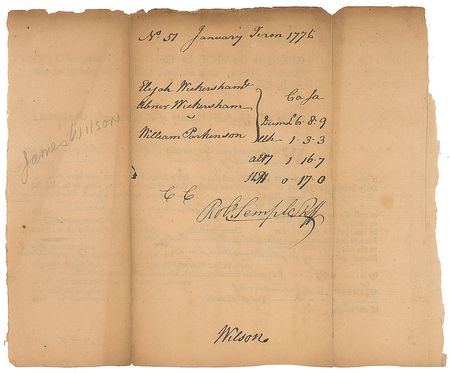 No 51 January Term 1776
Elijah Wickersham &
Abner Wickersham
v
William Parkinson
Ca Sa
Dam £6. 8. 9
1. 3. 3
1 16. 7
0. 17. 0
C C
Robt Semple Shff
Wilson
James Wilson